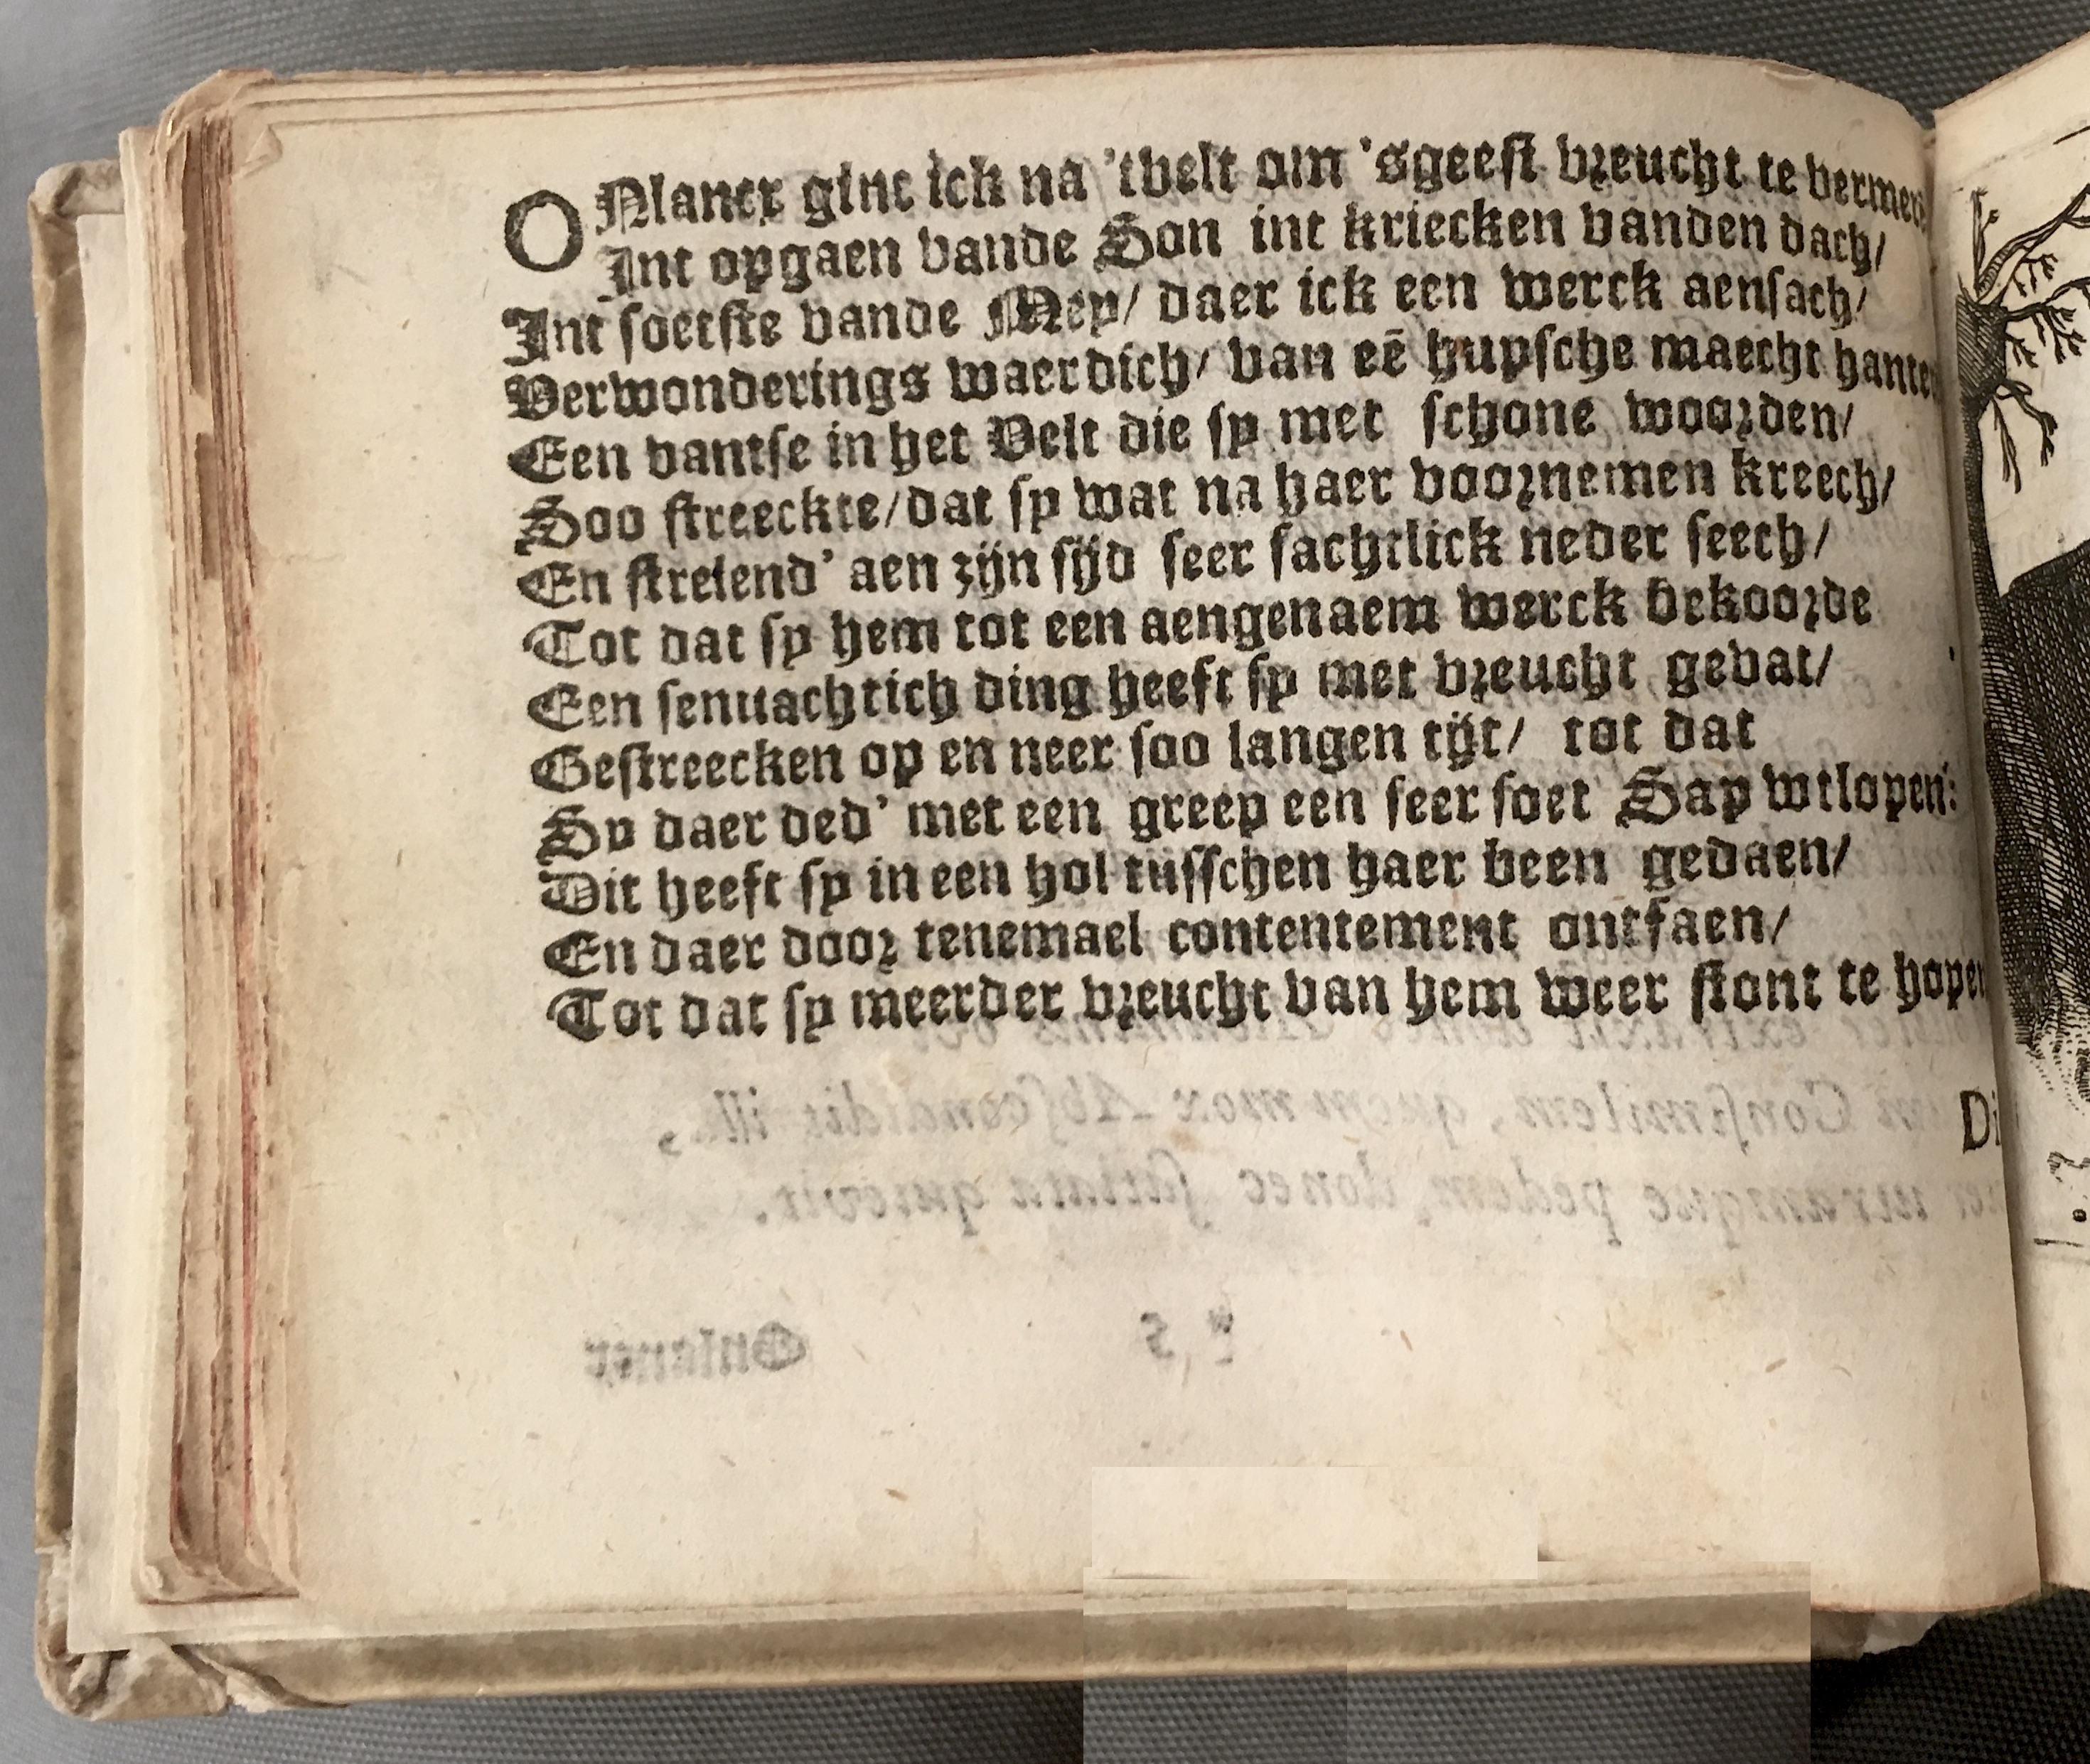 ONlancx ginc ick na 'tvelt om 'sgeest vreucht te
Int opgaen vande Son int kriecken vanden dach/
Int soetste vande Mey/ daer ick een werck aensach/
Verwonderings waerdich/ van eē hupsche maecht
Een vantse in het Velt die sy met schone woorden/
Soo streeckte/dat sy wat na haer voornemen kreech/
En strelend' aen zijn sijd seer sachtlick neder seech/
Tot dat sy hem tot een aengenaem werck bekoorde
Een senuachtich ding heeft sy met vreucht gevat/
Gestreecken op en neer soo langen tijt/ tot dat
Sy daer ded' met een greep een seer soet Sap wtlopen:
Dit heeft sy in een hol tusschen haer been gedaen/
En daer door tenemael contentement ontfaen/
Tot dat sy meerder vreucht van hem weer stont te
Di